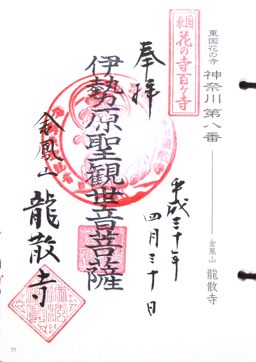 東国花の寺 神奈川第八番
金鳳山 龍散寺
東国
花の寺百ケ寺
奉拝
伊勢原聖観世音菩薩
金鳳山
龍散寺
平成三十年
四月三十日
77